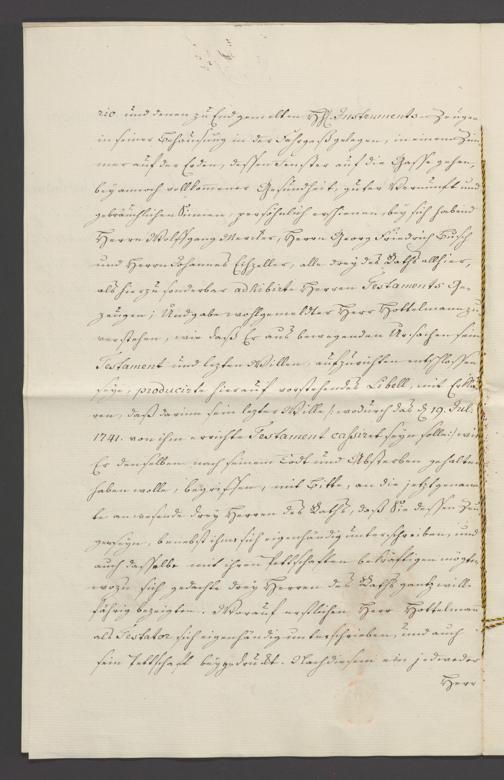 rio und denen zu End gemelten H. Instruments-Zeugen
in seiner Behausung in der Fahrgaß gelegen, in einem Zim-
mer auf der Erden, dessen Fenster auf die Gasse gehen,
bey annoch vollkommener Gesundheit, guter Vernunfft und
gebräuchlichen Sinnen, persöhnlich erschienen, bey sich habend
Herrn Wolffgang Mercker, Herrn Georg Friedrich Busch
und Herrn Johannes Eichzeller, alle drey des Raths allhier,
als hierzu sonderbar adhibirte Herren Testaments Ge-
zeugen; Und gabe wohlgemeldter Herr Hottelmann zu
verstehen, wie daß Er aus bewegenden Ursachen sein
Testament und lezten Willen, aufzurichten entschlossen
seye, producirte hierauf vorstehendes Libell, mit Erkläh-
ren, daß darinn sein lezter Wille /: wodurch das d. 19. Jul.
1741. von ihm errichte Testament cassiret seyn solle :/ wie
Er denselben nach seinem Todt und Absterben gehalten
haben wolle, begriffen, mit Bitte, an die jetztgenan-
te anwesende drey Herren des Raths, daß Sie dessen Zeu-
gen seyn, benebst ihm sich eigenhändig unterschreiben, und
auch dasselbe mit ihren Pettschafften bekräfftigen mögten,
wozu sich gedachte drey Herren des Raths gantz will-
fährig bezeigten. Worauf erstlichen Herr Hottelman
als Testator sich eigenhändig unterschrieben, und auch
sein Pettschafft beygedruckt. Nach diesem ein jedweder
Herr